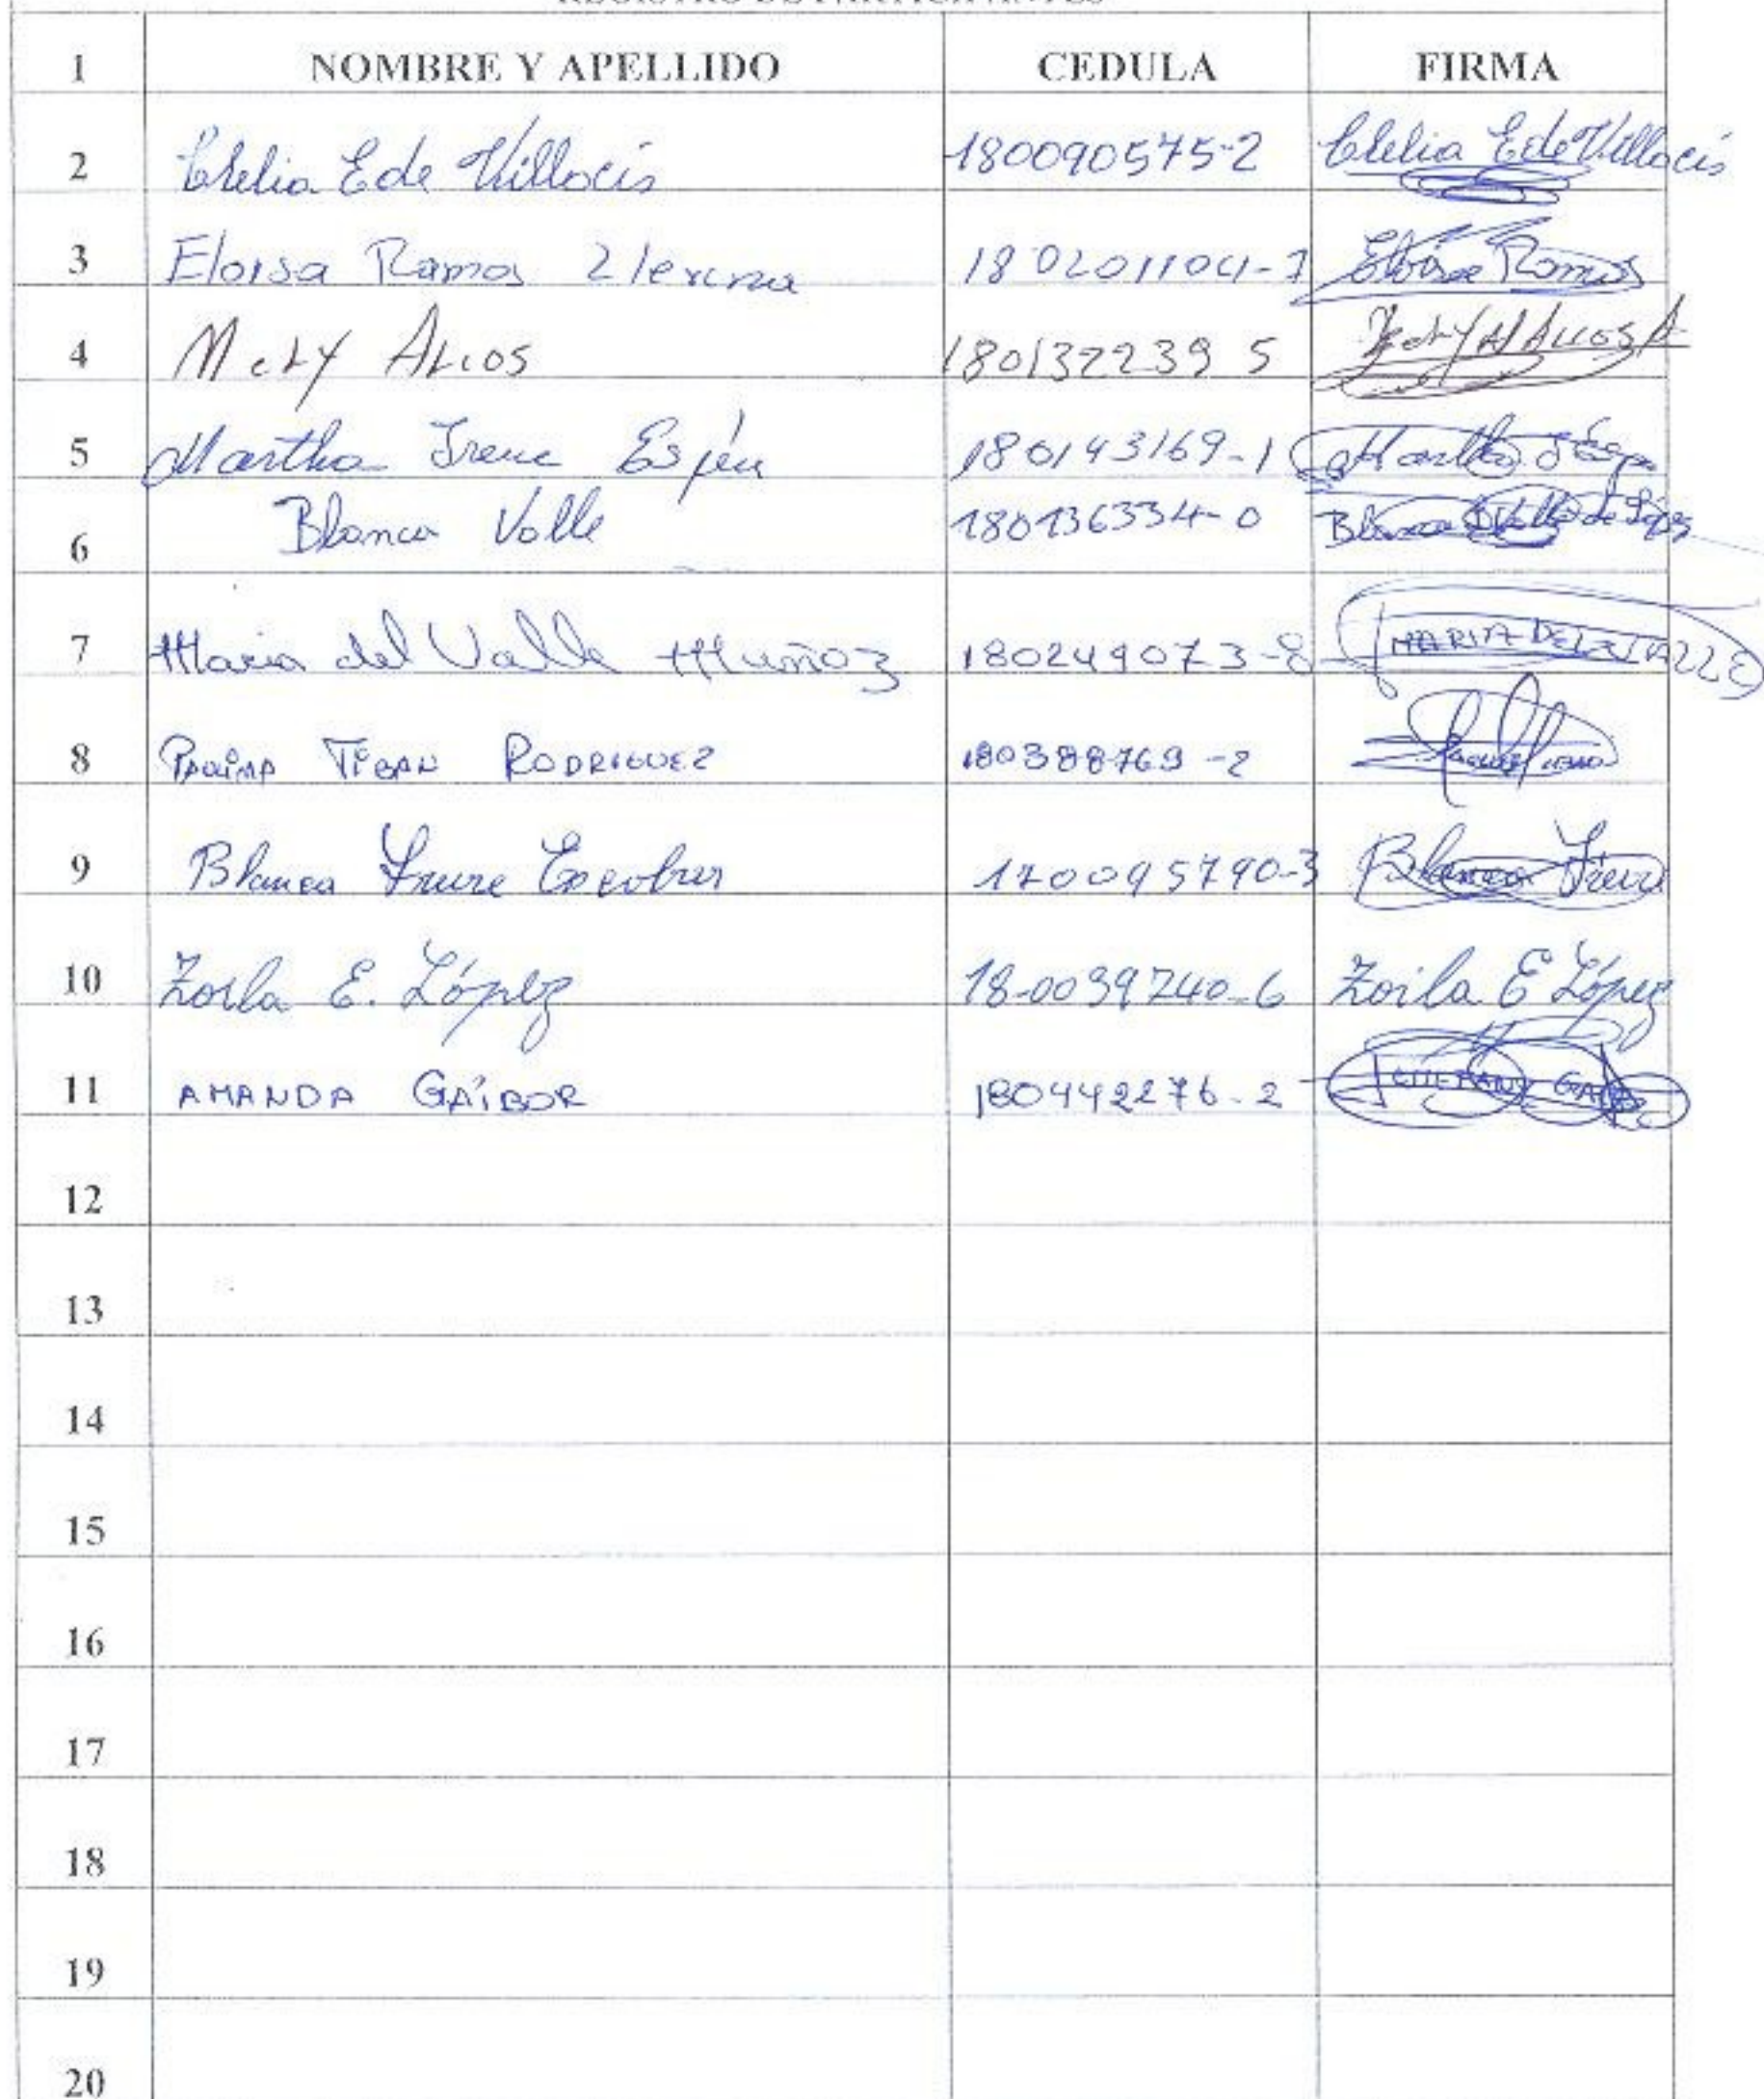 REGISTRO DE PARTICIPANTES
1 NOMBRE Y APELLIDO CEDULA FIRMA
2 Clelia E de Villacís 180090575-2 Clelia E de Villacís
3 Eloisa Ramos 18 0201104-7 Eloisa Ramos
4 180132239 5
5 Martha Irene Espín 180143169-1 Martha
6 Blanca Valle 180136334-0 Blanca Valle de López
7 Maria del Valle Muñoz 180249073-8 MARIA DEL VALLE
8 RODRIGUEZ 180388769-2
9 Blanca Freire Escobar 170095790-3 Blanca Freire
10 Zoila E. López 18-0039740-6 Zoila E López
11 AMANDA GAÍBOR 180442276-2
12
13
14
15
16
17
18
19
20